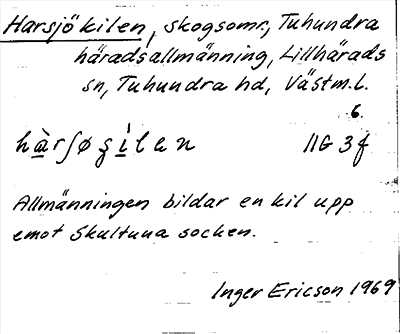 Harsjökilen, skogsomr., Tuhundra
häradsallmänning, Lillhärads
sn, Tuhundra hd, Västm. l.
6.
11G 3f
Allmänningen bildar en kil upp
emot Skultuna socken.
Inger Ericson 1969